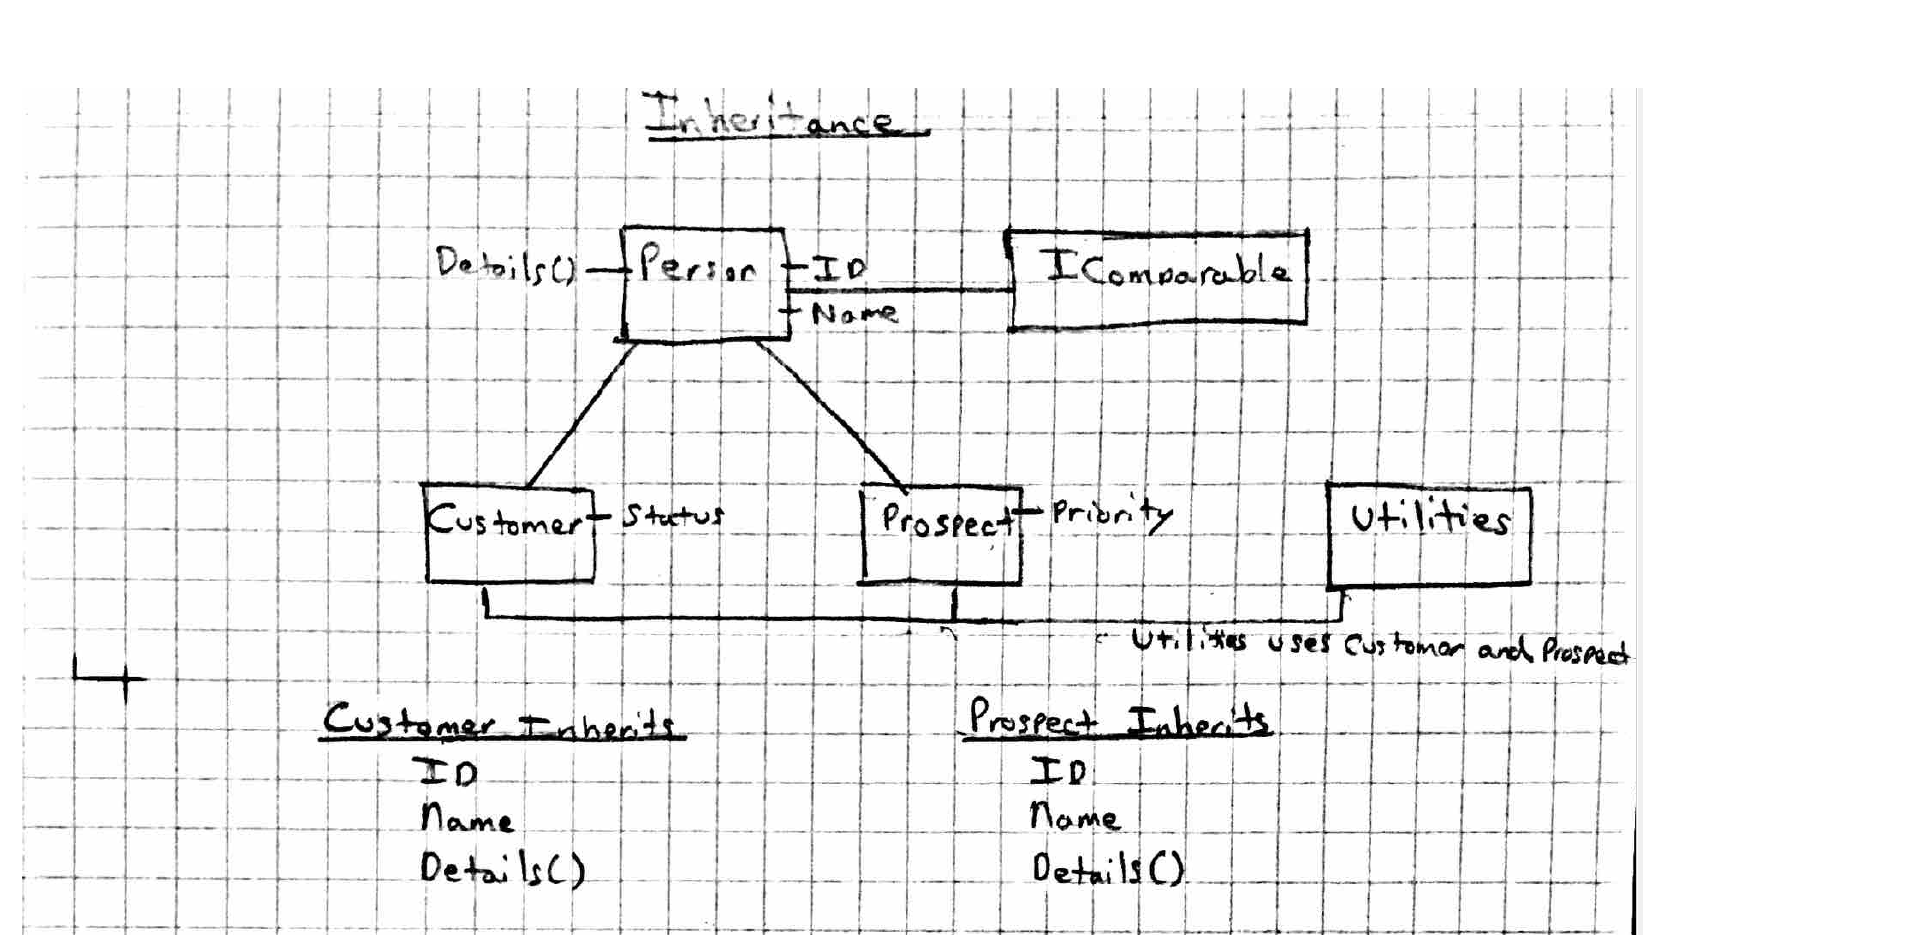 Inheritance
Details() Person ID IComparable
Name
Customer Status Prospect Priority Utilities
Utilities uses Customer and Prospect
Customer Inherits Prospect Inherits
ID ID
Name Name
Details() Details()